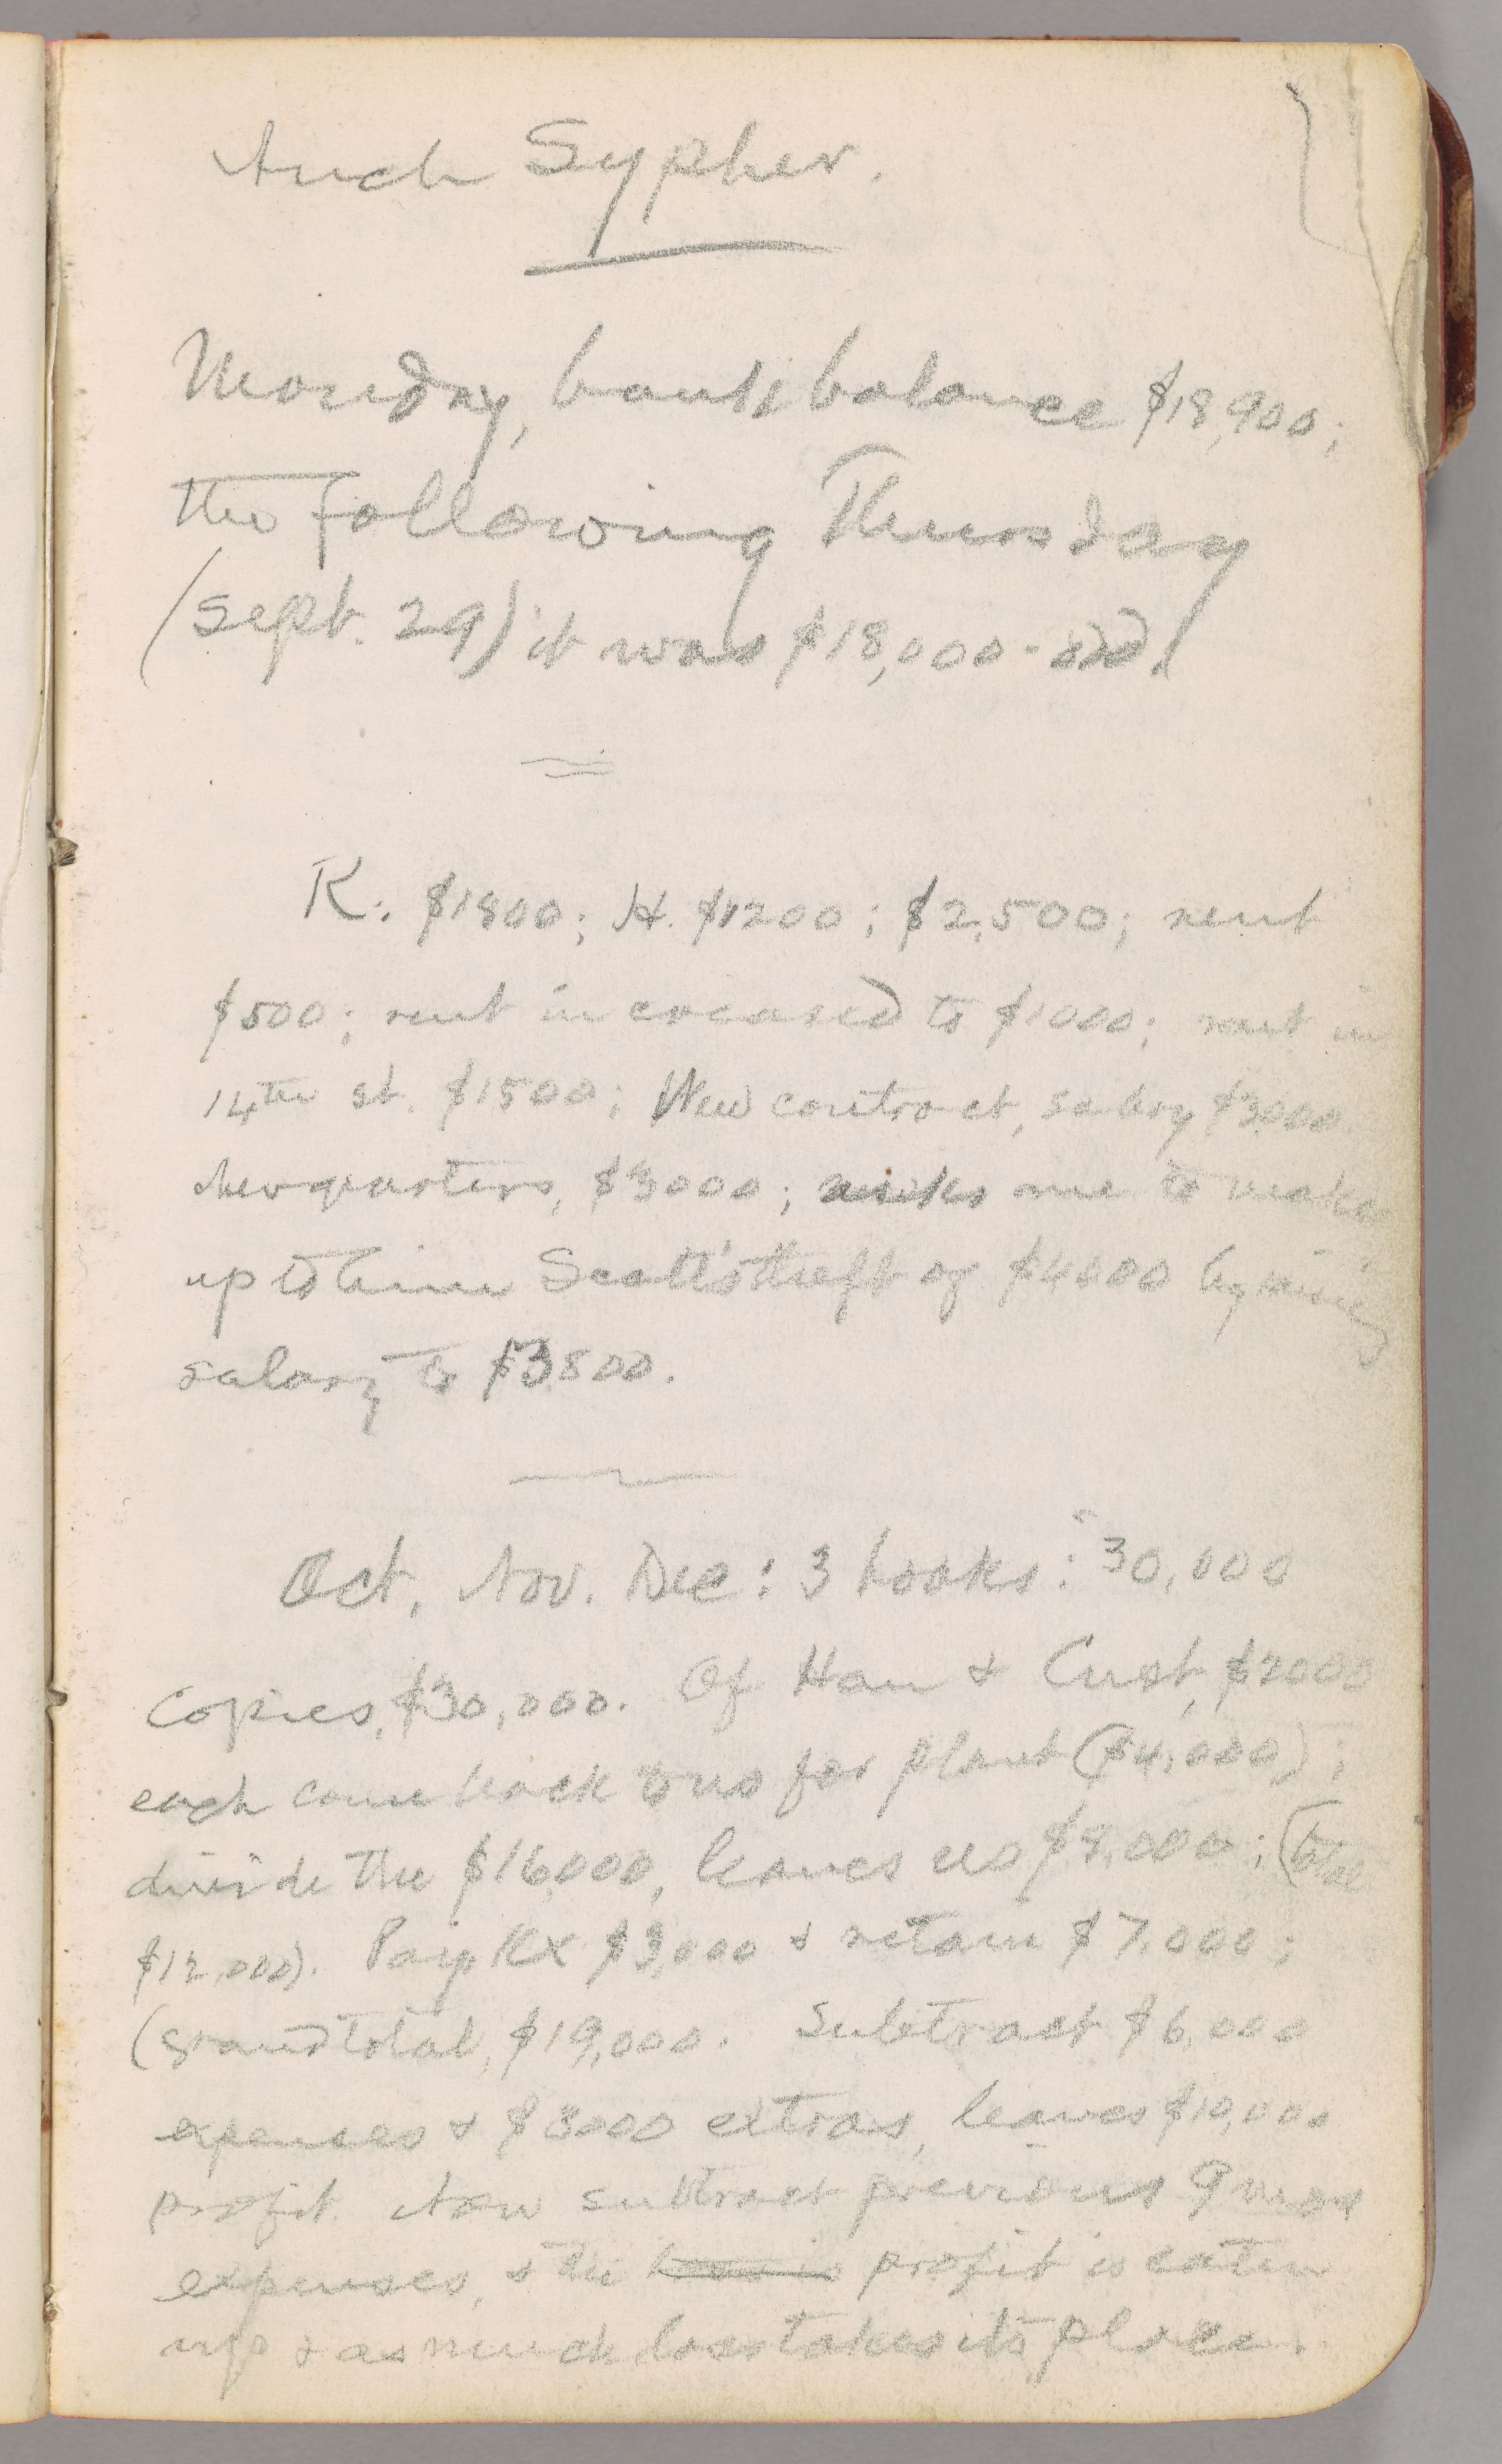 Auch Sypher.
Monday, bank balance $18,900;
the following Thursday
(Sept. 29) it was $18,000-odd!
K. $1800; H. $1200; $2,500; rent
$500; rent increased to $1000; rent in
14th st. $1500; New contract, salary $3000.
New quarters, $3000; asks me to make
up to him Scott's theft of $4000 by raising
salary to $3800.
Oct, Nov. Dec: 3 books: 30,000
copies, $30,000. Of Ham & Cust, $2000
each come back to us for plant ($4,000);
divide the $16,000, leaves us $8,000; (total
$12,000). Pay Kx $3,000 & retain $7,000;
(grand total, $19,000. Subtract $6,000
expenses & $3000 extras, leaves $10,000
profit. Now subtract previous 9 mos
expenses, & the profit is eaten
up & as much loss takes its place.